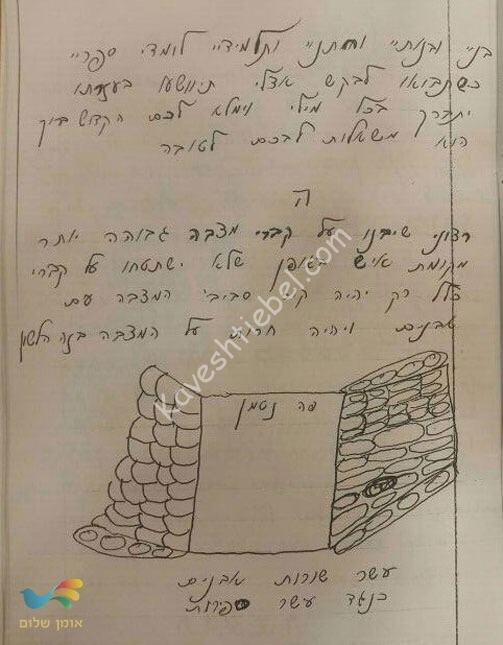 בניי ובנותיי וחתניי ותלמידיי לומדי ספריי
כשתבואו לבקש אצלי תיוושעו בעזהי
יתברך בכל מילי וימלא לכם הקדוש ברוך
הוא משאלות לבכם לטובה
ה
רצוני שיבנו על קברי מצבה גבוהה יותר
מקומת איש באופן שלא ישתטחו על קברי
כלל רק יהיה קיר סביבי המצבה עם
אבנים ויהיה חרות על המצבה בזה הלשון
פה נטמן
עשר שורות אבנים
כנגד עשר ספירות
Kaveshtiebel.com
אומן שלום